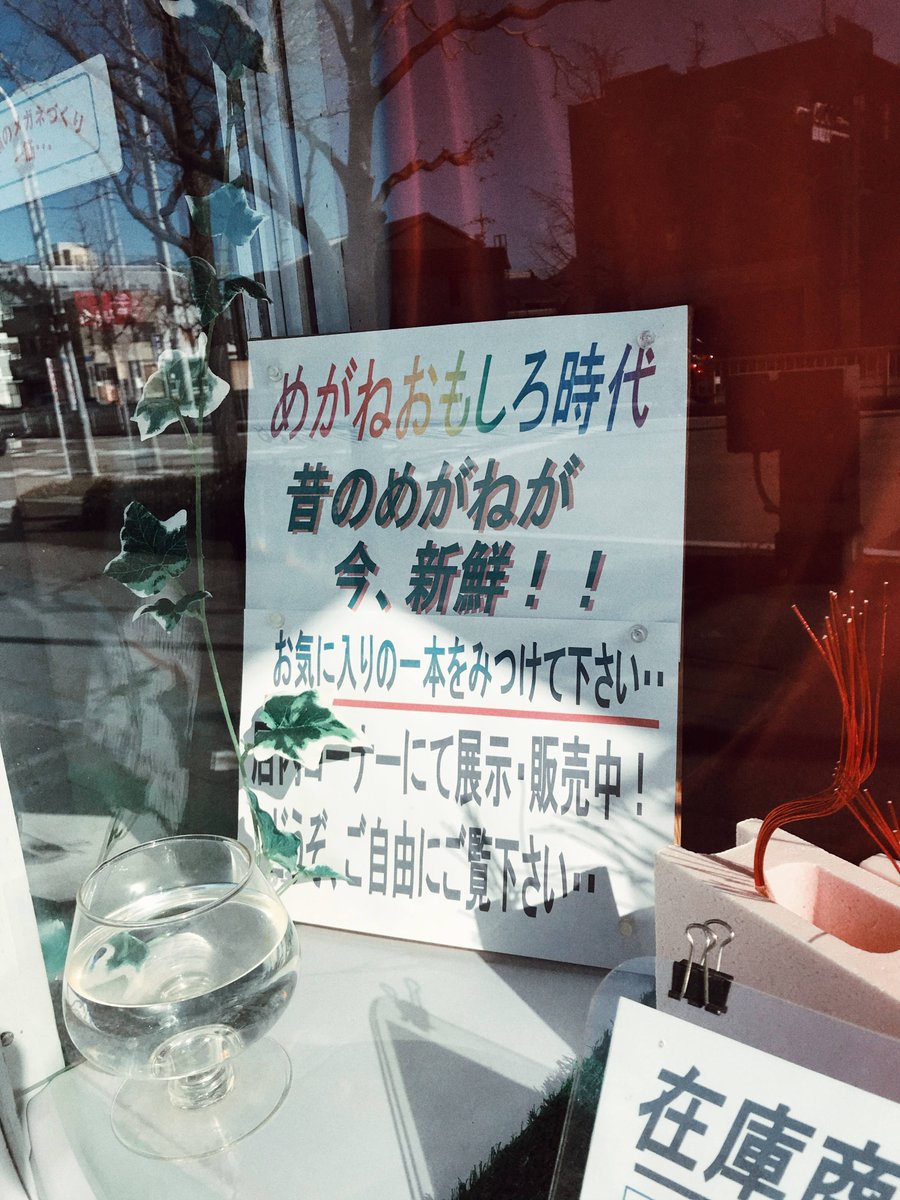 のメガネづくり
めがねおもしろ時代
昔のめがねが
今、新鮮！！
お気に入りの一本をみつけて下さい‥
店内コーナーにて展示・販売中！
どうぞ、ご自由にご覧下さい‥
在庫商